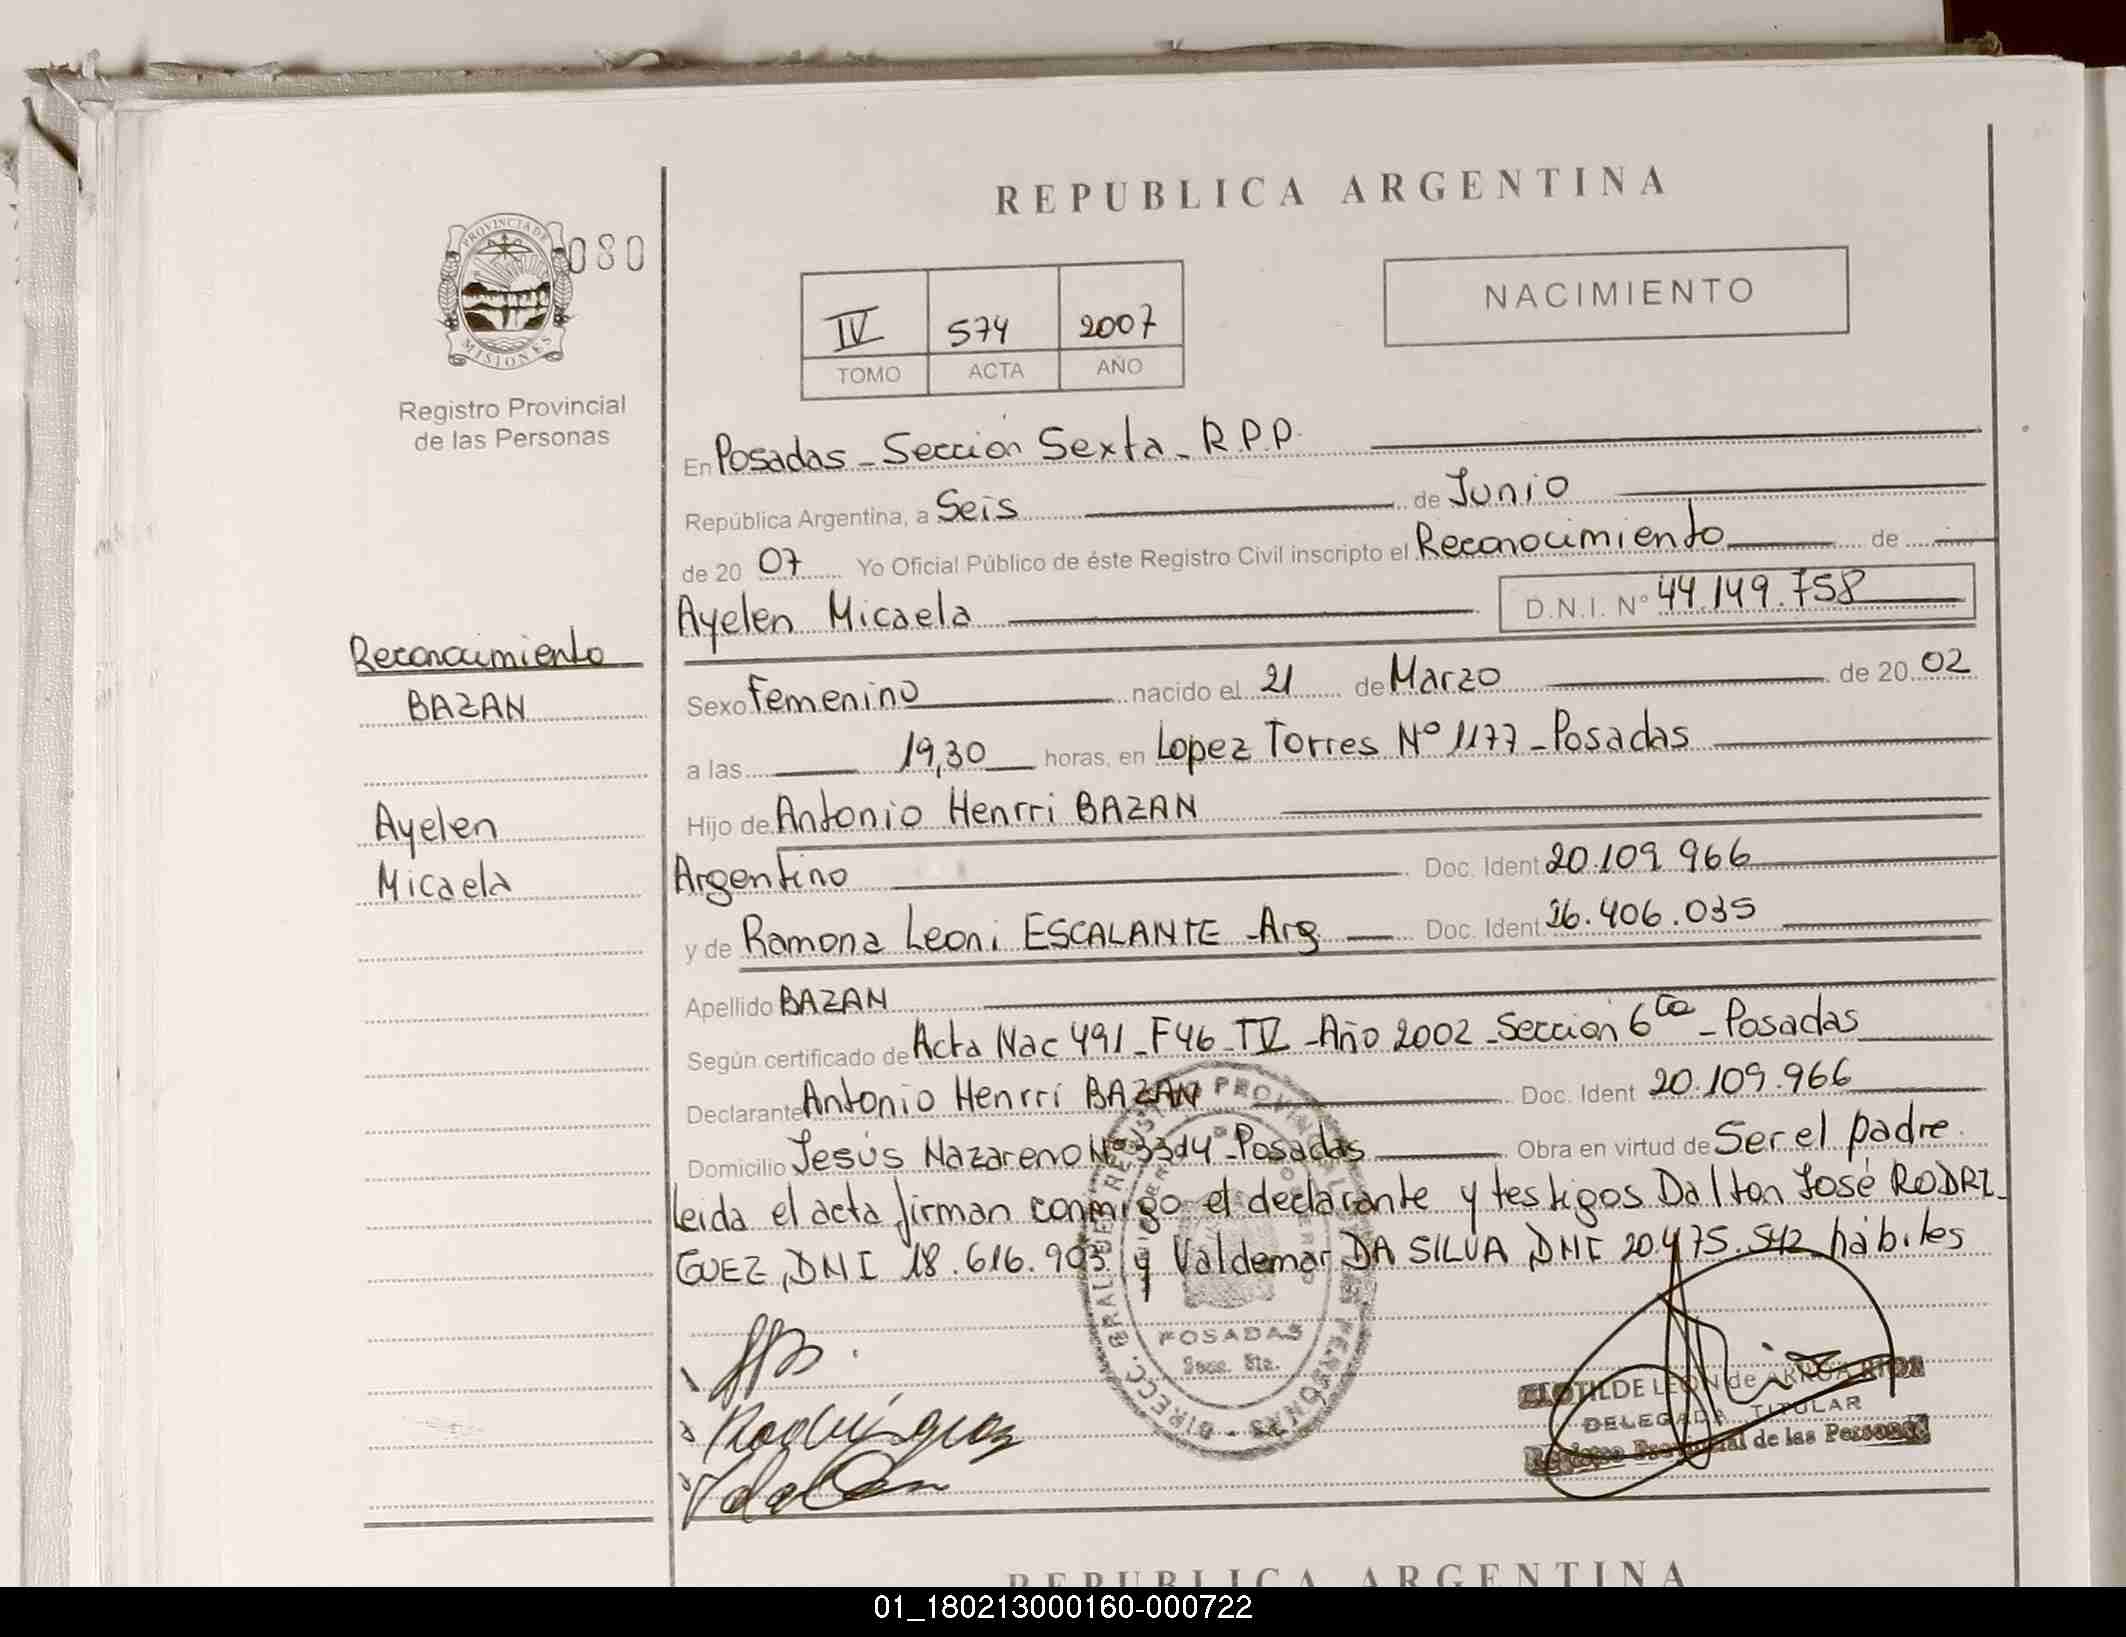 REPUBLICA ARGENTINA
PROVINCIA DE
MISIONES
080
Registro Provincial
de las Personas
IV 574 2007
TOMO ACTA AÑO
NACIMIENTO
En Posadas - Sección Sexta - R.P.P.
República Argentina, a Seis de Junio
de 20 07 Yo Oficial Público de éste Registro Civil inscripto el Reconocimiento de
Ayelen Micaela D.N.I. Nº 44.149.758
Reconocimiento
BAZAN
Ayelen
Micaela
Sexo Femenino nacido el 21 de Marzo de 20 02
a las 19,30 horas, en Lopez Torres Nº 1177 - Posadas
Hijo de Antonio Henrri BAZAN
Argentino Doc. Ident. 20.109.966
y de Ramona Leoni ESCALANTE - Arg Doc. Ident. 26.406.035
Apellido BAZAN
Según certificado de Acta Nac 491 - F46 - TIV - Año 2002 - Sección 6ta - Posadas
Declarante Antonio Henrri BAZAN Doc. Ident 20.109.966
Domicilio Jesús Nazareno Nº - Posadas Obra en virtud de Ser el padre
leida el acta firman conmigo el declarante y testigos Dalton José RODRI-
GUEZ, DNI 18.616.903 y Valdemar DA SILVA, DNI 20.475.542 hábiles
POSADAS
Secc. 6ta.
Rodríguez
CLOTILDE LEON de ARRUA RIOS
DELEGADA TITULAR
Registro Provincial de las Personas
REPUBLICA ARGENTINA
01_180213000160-000722